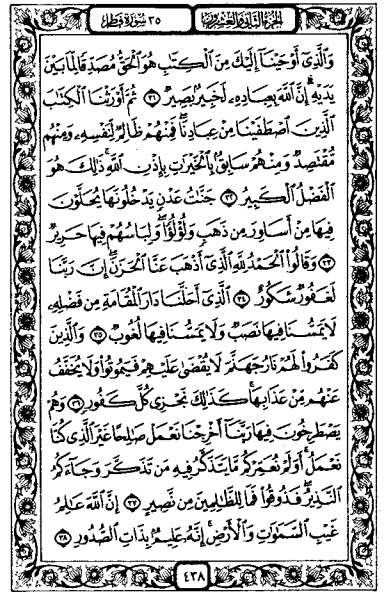 الجزء الثاني والعشرون ٣٥ سورة فاطر
وَالَّذِي أَوْحَيْنَا إِلَيْكَ مِنَ الْكِتَٰبِ هُوَ الْحَقُّ مُصَدِّقًا لِّمَا بَيْنَ
يَدَيْهِ إِنَّ اللَّهَ بِعِبَادِهِ لَخَبِيرٌ بَصِيرٌ ٣١ ثُمَّ أَوْرَثْنَا الْكِتَٰبَ
الَّذِينَ اصْطَفَيْنَا مِنْ عِبَادِنَا فَمِنْهُمْ ظَالِمٌ لِّنَفْسِهِ وَمِنْهُم
مُّقْتَصِدٌ وَمِنْهُمْ سَابِقٌ بِالْخَيْرَٰتِ بِإِذْنِ اللَّهِ ذَٰلِكَ هُوَ
الْفَضْلُ الْكَبِيرُ ٣٢ جَنَّٰتُ عَدْنٍ يَدْخُلُونَهَا يُحَلَّوْنَ
فِيهَا مِنْ أَسَاوِرَ مِن ذَهَبٍ وَلُؤْلُؤًا وَلِبَاسُهُمْ فِيهَا حَرِيرٌ
٣٣ وَقَالُوا الْحَمْدُ لِلَّهِ الَّذِي أَذْهَبَ عَنَّا الْحَزَنَ إِنَّ رَبَّنَا
لَغَفُورٌ شَكُورٌ ٣٤ الَّذِي أَحَلَّنَا دَارَ الْمُقَامَةِ مِن فَضْلِهِ
لَا يَمَسُّنَا فِيهَا نَصَبٌ وَلَا يَمَسُّنَا فِيهَا لُغُوبٌ ٣٥ وَالَّذِينَ
كَفَرُوا لَهُمْ نَارُ جَهَنَّمَ لَا يُقْضَىٰ عَلَيْهِمْ فَيَمُوتُوا وَلَا يُخَفَّفُ
عَنْهُم مِّنْ عَذَابِهَا كَذَٰلِكَ نَجْزِي كُلَّ كَفُورٍ ٣٦ وَهُمْ
يَصْطَرِخُونَ فِيهَا رَبَّنَا أَخْرِجْنَا نَعْمَلْ صَٰلِحًا غَيْرَ الَّذِي كُنَّا
نَعْمَلُ أَوَلَمْ نُعَمِّرْكُم مَّا يَتَذَكَّرُ فِيهِ مَن تَذَكَّرَ وَجَاءَكُمُ
النَّذِيرُ فَذُوقُوا فَمَا لِلظَّٰلِمِينَ مِن نَّصِيرٍ ٣٧ إِنَّ اللَّهَ عَٰلِمُ
غَيْبِ السَّمَٰوَٰتِ وَالْأَرْضِ إِنَّهُ عَلِيمٌ بِذَاتِ الصُّدُورِ ٣٨
٤٣٨